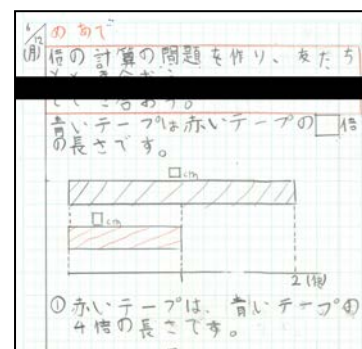 6/12
(月)
めあて
倍の計算の問題を作り、友だち
青いテープは赤いテープの□倍
の長さです。
□cm
□cm
2(倍)
① 赤いテープは、青いテープの
4倍の長さです。